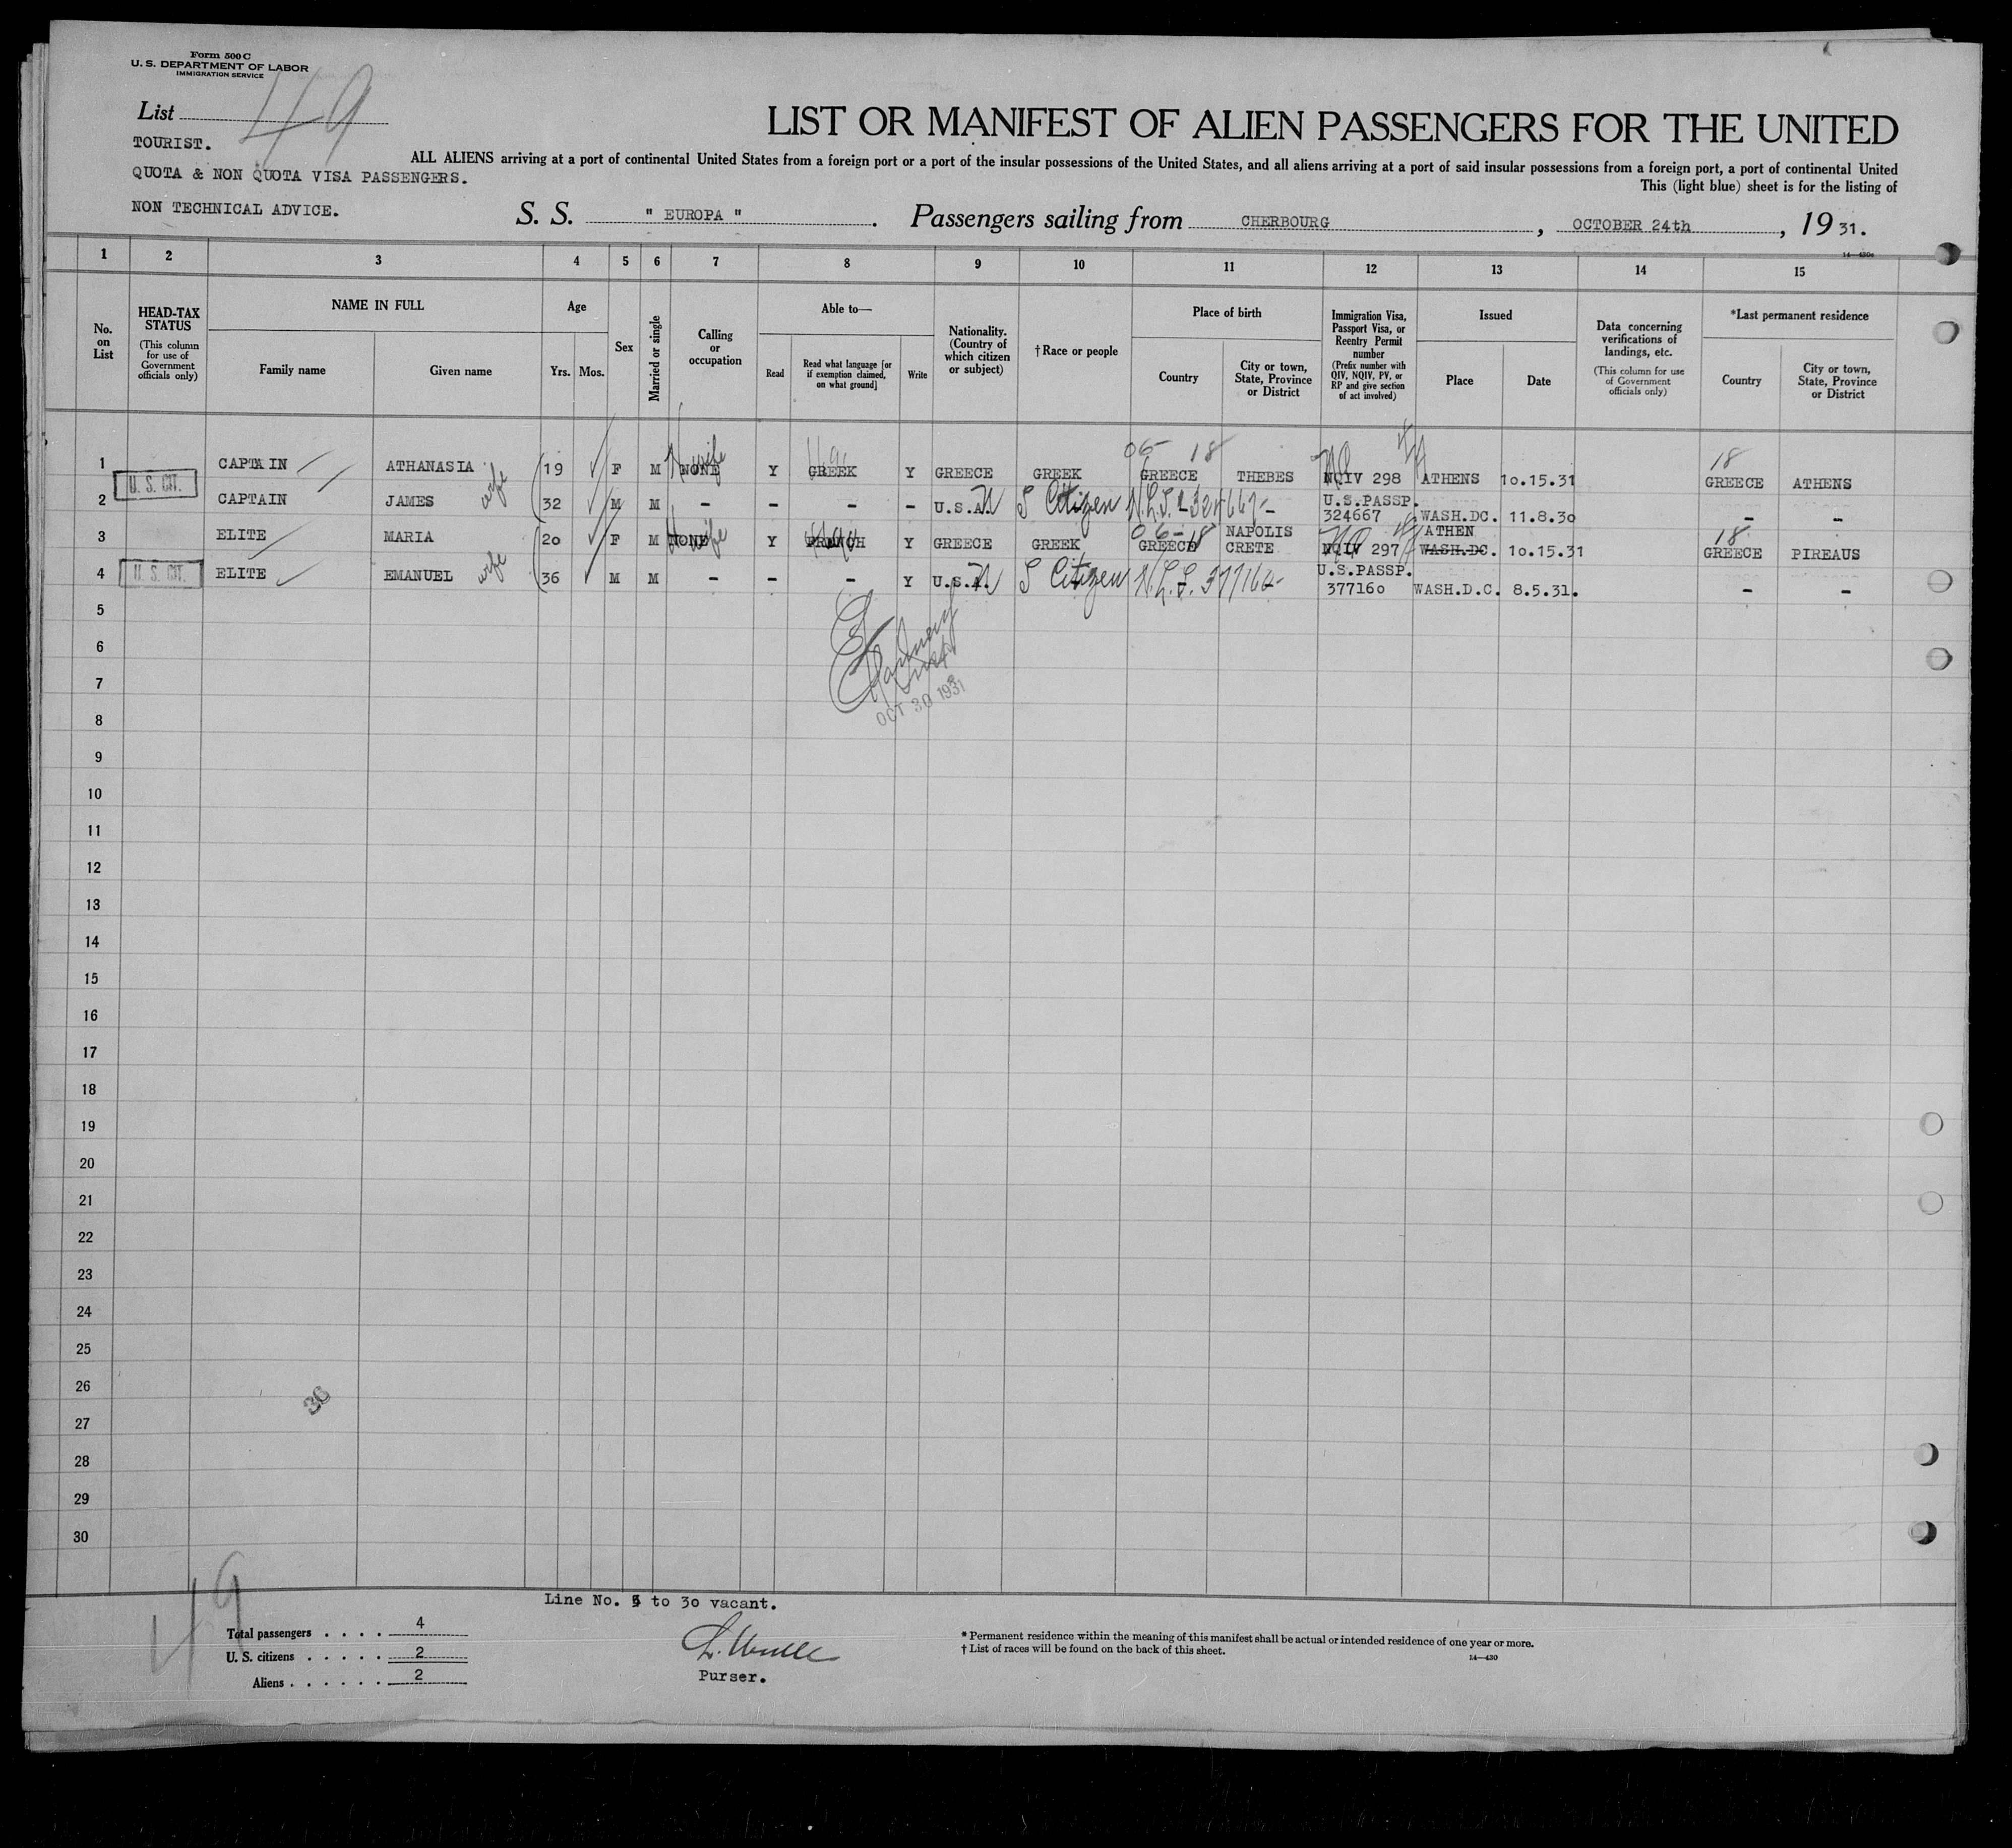 Form 500 C
U. S. DEPARTMENT OF LABOR
IMMIGRATION SERVICE
List 49
TOURIST.
QUOTA & NON QUOTA VISA PASSENGERS.
NON TECHNICAL ADVICE.
LIST OR MANIFEST OF ALIEN PASSENGERS FOR THE UNITED
ALL ALIENS arriving at a port of continental United States from a foreign port or a port of the insular possessions of the United States, and all aliens arriving at a port of said insular possessions from a foreign port, a port of continental United
This (light blue) sheet is for the listing of
S. S. " EUROPA ". Passengers sailing from CHERBOURG, OCTOBER 24th, 1931.
14—430c
1 2 3 4 5 6 7 8 9 10 11 12 13 14 15
No. on List
HEAD-TAX STATUS (This column for use of Government officials only)
NAME IN FULL
Family name
Given name
Age
Yrs. Mos.
Sex
Married or single
Calling or occupation
Able to—
Read
Read what language [or if exemption claimed, on what ground]
Write
Nationality. (Country of which citizen or subject)
† Race or people
Place of birth
Country
City or town, State, Province or District
Immigration Visa, Passport Visa, or Reentry Permit number (Prefix number with QIV, NQIV, PV, or RP and give section of act involved)
Issued
Place
Date
Data concerning verifications of landings, etc. (This column for use of Government officials only)
*Last permanent residence
Country
City or town, State, Province or District
06- 18 18
1 CAPTAIN ATHANASIA wife 19 F M NONE H wife Y GREEK Y GREECE GREEK GREECE THEBES NQIV 298 ATHENS 10.15.31 GREECE ATHENS
U. S. CIT.
2 CAPTAIN JAMES 32 M M - - - - U.S.A. U S Citizen 324667 - U.S.PASSP. 324667 WASH.DC. 11.8.30 - -
06-18 18
3 ELITE MARIA wife 20 F M NONE H wife Y FRENCH Y GREECE GREEK GREECE NAPOLIS CRETE NQIV 297 ATHEN WASH.DC. 10.15.31 GREECE PIREAUS
U. S. CIT.
4 ELITE EMANUEL 36 M M - - - Y U.S.A. U S Citizen 377160 - U.S.PASSP. 377160 WASH.D.C. 8.5.31. - -
5
6
7
OCT 30 1931
8
9
10
11
12
13
14
15
16
17
18
19
20
21
22
23
24
25
26
36
27
28
29
30
49
Line No. 5 to 30 vacant.
Total passengers . . . . 4
U. S. citizens . . . . . 2
Aliens . . . . . . 2
Purser.
* Permanent residence within the meaning of this manifest shall be actual or intended residence of one year or more.
† List of races will be found on the back of this sheet.
14—430